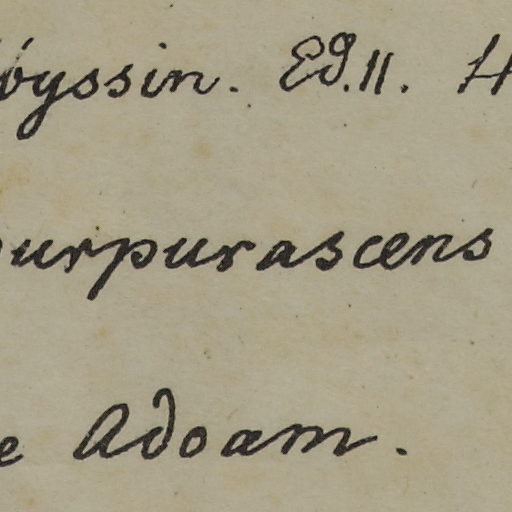 byssin. Ed. II. H
purpurascens
e Adoam.